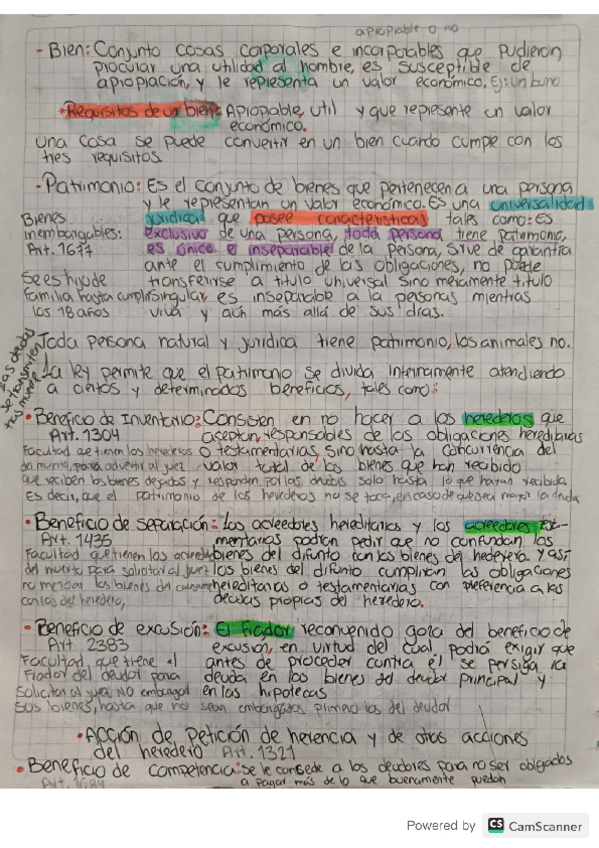 apropiable o no
- Bien: Conjunto cosas corporales e incorporables que pudieron
procurar una utilidad al hombre, es susceptible de
apropiación, y le representa un valor económico. Ej: un buro
*Requisitos de un bien: Apropiable, util y que represente un valor
económico.
una cosa se puede convertir en un bien cuando cumpe con los
tres requisitos.
- Patrimonio: Es el conjunto de bienes que pertenecen a una persona
y le representan un valor económico. Es una universalidad
Bienes juridica que posee caracteristicas tales como: Es
inembargables: exclusivo de una persona, toda persona tiene patrimonio,
Art. 1677 es único e inseparable de la persona, sirve de garantia
ante el cumplimiento de las obligaciones, no puede
Se es hijo de transferirse a titulo universal sino meramente titulo
familia hasta cumplir singular, es inseparable a la personas mientras
los 18 años viva y aún más allá de sus dias.
Las deudas
se transmiten
tras muerte
Toda persona natural y juridica tiene patrimonio, los animales no.
La ley permite que el patrimonio se divida internamente atendiendo
a ciertos y determinados beneficios, tales como:
• Beneficio de Inventario: Consisten en no hacer a los herederos que
Art. 1304 aceptan, responsables de las obligaciones hereditarias
Facultad que tienen los herederos o testamentarias, sino hasta la concurrencia del
da muerto, para advertir al juez valor total de los bienes que han recibido
que reciben los bienes dejados y responden por las deudas solo hasta lo que hayan recibido
Es decir, que el patrimonio de los herederos no se toca, en caso de que sea mayor la deuda
• Beneficio de separación: Los acreedores hereditarios y los acreedores tes-
Art. 1435 mentarias podrán pedir que no confundan los
Facultad que tienen los acreedores bienes del difunto con los bienes del heredero. Y asi
del muerto para solicitar al juez los bienes del difunto cumplirian las obligaciones
no mezclar los bienes del causante hereditarias o testamentarias con preferencia a las
con los del heredero, deudas propias del heredero.
• Beneficio de excusión: El fiador reconvenido goza del beneficio de
Art 2383 excusión, en virtud del cual podrá exigir que
Facultad, que tiene el antes de proceder contra él se persiga la
fiador del deudor para deuda en los bienes del deudor principal y
solicitar al juez NO embargar en las hipotecas
sus bienes, hasta que no sean embargados primero los del deudor
• Acción de Petición de herencia y de otras acciones
del heredero Art. 1321
• Beneficio de competencia: se le concede a los deudores para no ser obligados
Art. 1684 a pagar más de lo que buenamente puedan
Powered by CS CamScanner